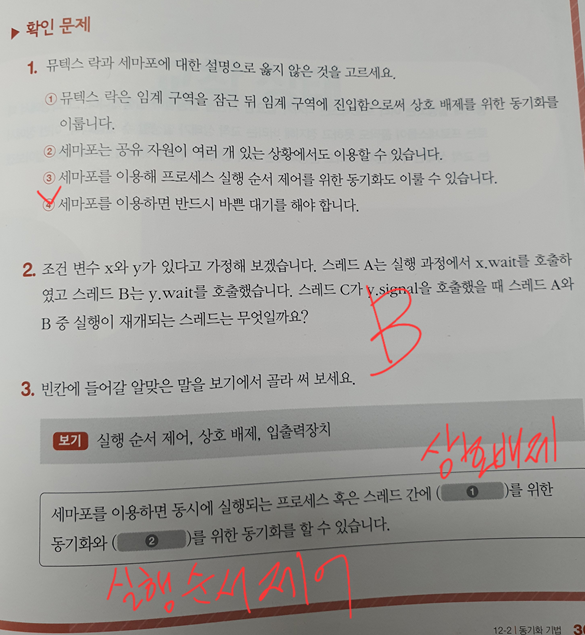 ▶ 확인 문제
1. 뮤텍스 락과 세마포에 대한 설명으로 옳지 않은 것을 고르세요.
① 뮤텍스 락은 임계 구역을 잠근 뒤 임계 구역에 진입함으로써 상호 배제를 위한 동기화를
이룹니다.
② 세마포는 공유 자원이 여러 개 있는 상황에서도 이용할 수 있습니다.
③ 세마포를 이용해 프로세스 실행 순서 제어를 위한 동기화도 이룰 수 있습니다.
④ 세마포를 이용하면 반드시 바쁜 대기를 해야 합니다.
2. 조건 변수 x와 y가 있다고 가정해 보겠습니다. 스레드 A는 실행 과정에서 x.wait를 호출하
였고 스레드 B는 y.wait를 호출했습니다. 스레드 C가 y.signal을 호출했을 때 스레드 A와
B 중 실행이 재개되는 스레드는 무엇일까요?
B
3. 빈칸에 들어갈 알맞은 말을 보기에서 골라 써 보세요.
보기 실행 순서 제어, 상호 배제, 입출력장치
상호배제
세마포를 이용하면 동시에 실행되는 프로세스 혹은 스레드 간에 ( ① )를 위한
동기화와 ( ② )를 위한 동기화를 할 수 있습니다.
실행순서제어
12-2 | 동기화 기법